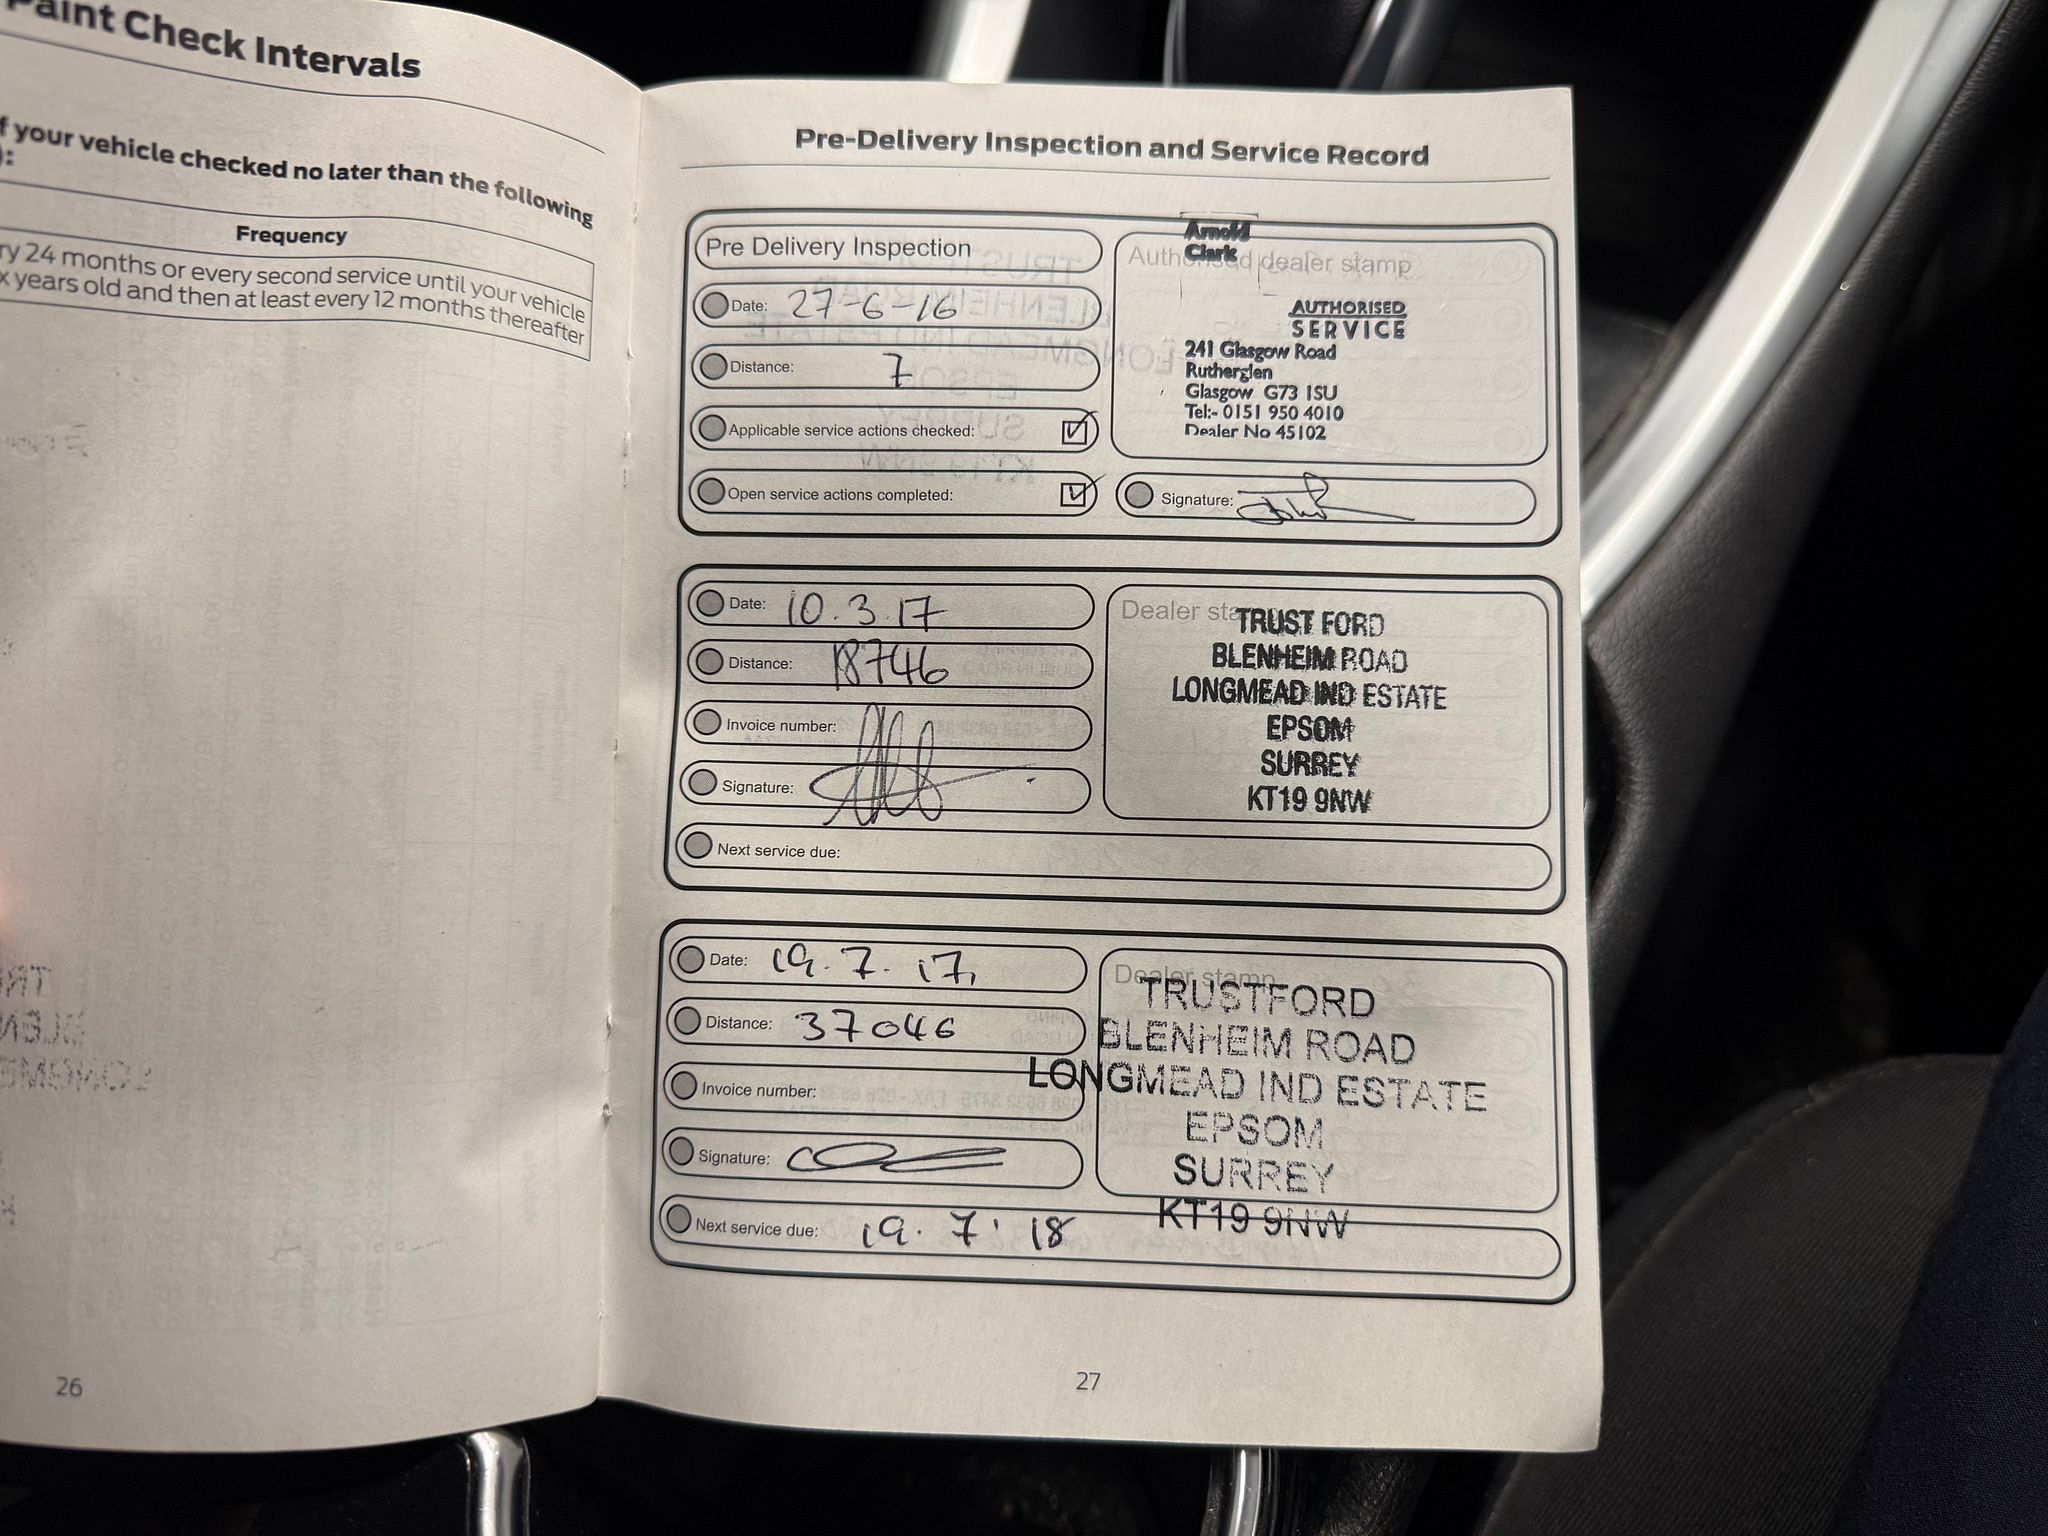 Paint Check Intervals
f your vehicle checked no later than the following
):
Frequency
ry 24 months or every second service until your vehicle
x years old and then at least every 12 months thereafter
26
Pre-Delivery Inspection and Service Record
Pre Delivery Inspection
Date: 27-6-16
Distance: 7
Applicable service actions checked:
Open service actions completed:
Authorised dealer stamp
Arnold
Clark
AUTHORISED
SERVICE
241 Glasgow Road
Rutherglen
Glasgow G73 1SU
Tel:- 0151 950 4010
Dealer No 45102
Signature:
Date: 10.3.17
Distance: 18746
Invoice number:
Signature:
Next service due:
Dealer stamp
TRUST FORD
BLENHEIM ROAD
LONGMEAD IND ESTATE
EPSOM
SURREY
KT19 9NW
Date: 19.7.17.
Distance: 37046
Invoice number:
Signature:
Next service due: 19.7.18
Dealer stamp
TRUSTFORD
BLENHEIM ROAD
LONGMEAD IND ESTATE
EPSOM
SURREY
KT19 9NW
27